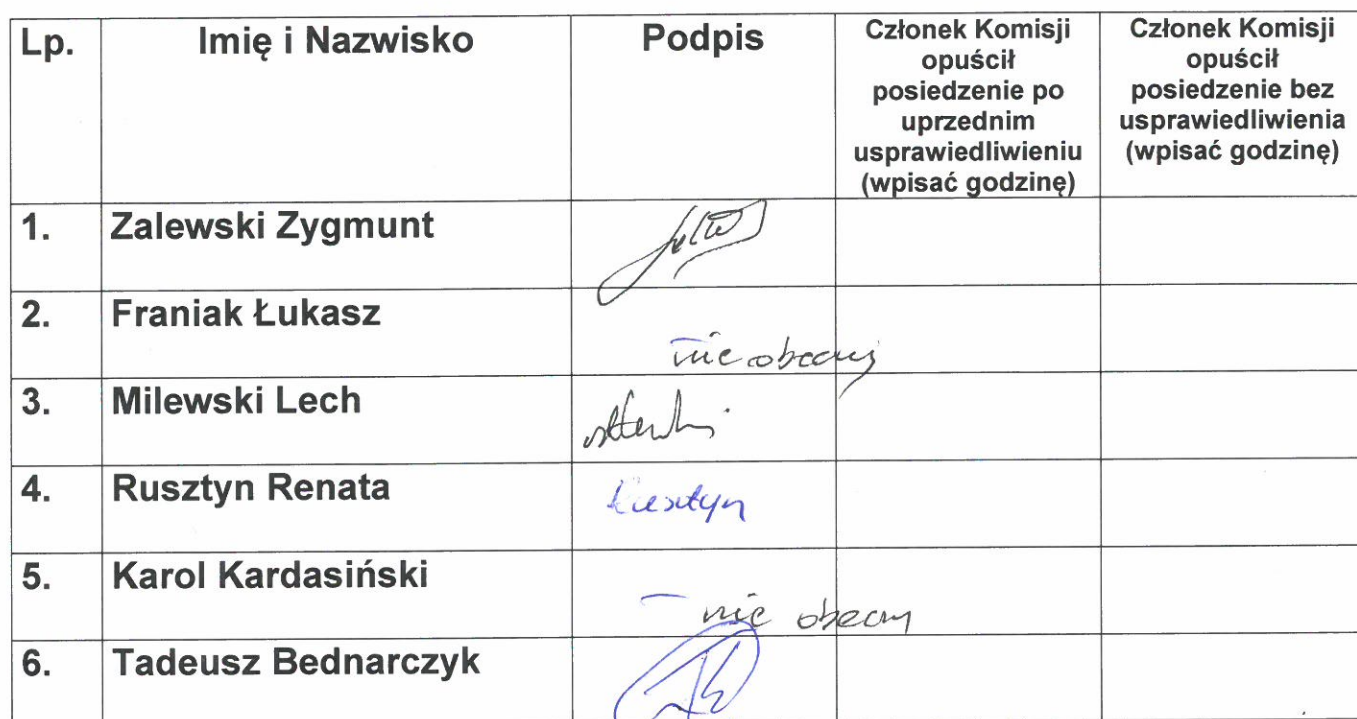 Lp.
Imię i Nazwisko
Podpis
Członek Komisji
opuścił
posiedzenie po
uprzednim
usprawiedliwieniu
(wpisać godzinę)
Członek Komisji
opuścił
posiedzenie bez
usprawiedliwienia
(wpisać godzinę)
1. Zalewski Zygmunt
2. Franiak Łukasz
nie obecny
3. Milewski Lech
4. Rusztyn Renata Rusztyn
5. Karol Kardasiński
nie obecny
6. Tadeusz Bednarczyk